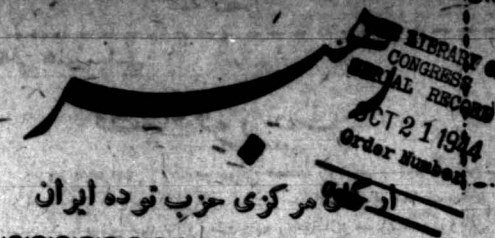 رهبر
LIBRARY
CONGRESS
SERIAL RECORD
OCT 21 1944
Order Number
ارگان مرکزی حزب توده ایران